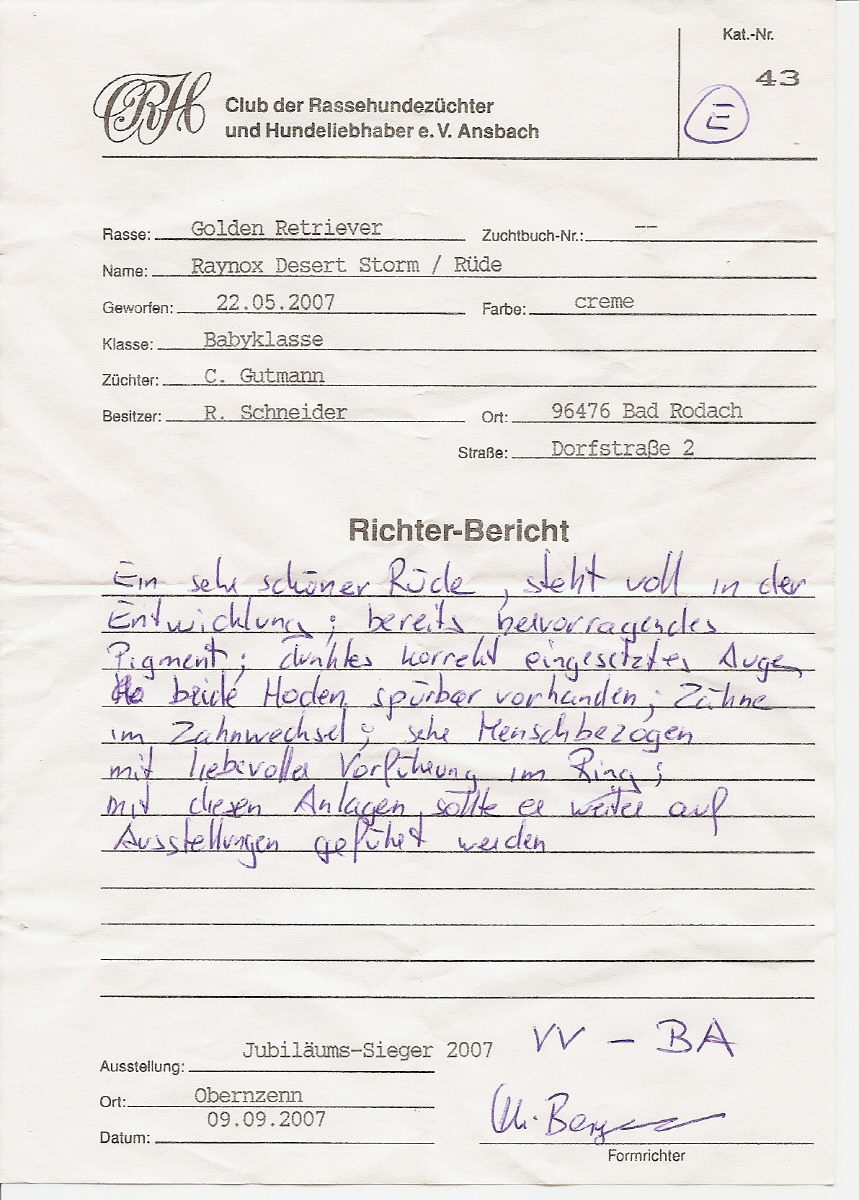 Kat.-Nr.
43
E
CRH
Club der Rassehundezüchter
und Hundeliebhaber e.V. Ansbach
Rasse: Golden Retriever Zuchtbuch-Nr.: --
Name: Raynox Desert Storm / Rüde
Geworfen: 22.05.2007 Farbe: creme
Klasse: Babyklasse
Züchter: C. Gutmann
Besitzer: R. Schneider Ort: 96476 Bad Rodach
Straße: Dorfstraße 2
Richter-Bericht
Ein sehr schöner Rüde, steht voll in der
Entwicklung; bereits hervorragendes
Pigment; dunkles korrekt eingesetztes Auge,
beide Hoden spürbar vorhanden; Zähne
im Zahnwechsel; sehr Menschbezogen
mit liebevoller Vorführung im Ring;
mit diesen Anlagen sollte er weiter auf
Ausstellungen geführt werden
Ausstellung: Jubiläums-Sieger 2007 VV - BA
Ort: Obernzenn
Datum: 09.09.2007
Formrichter